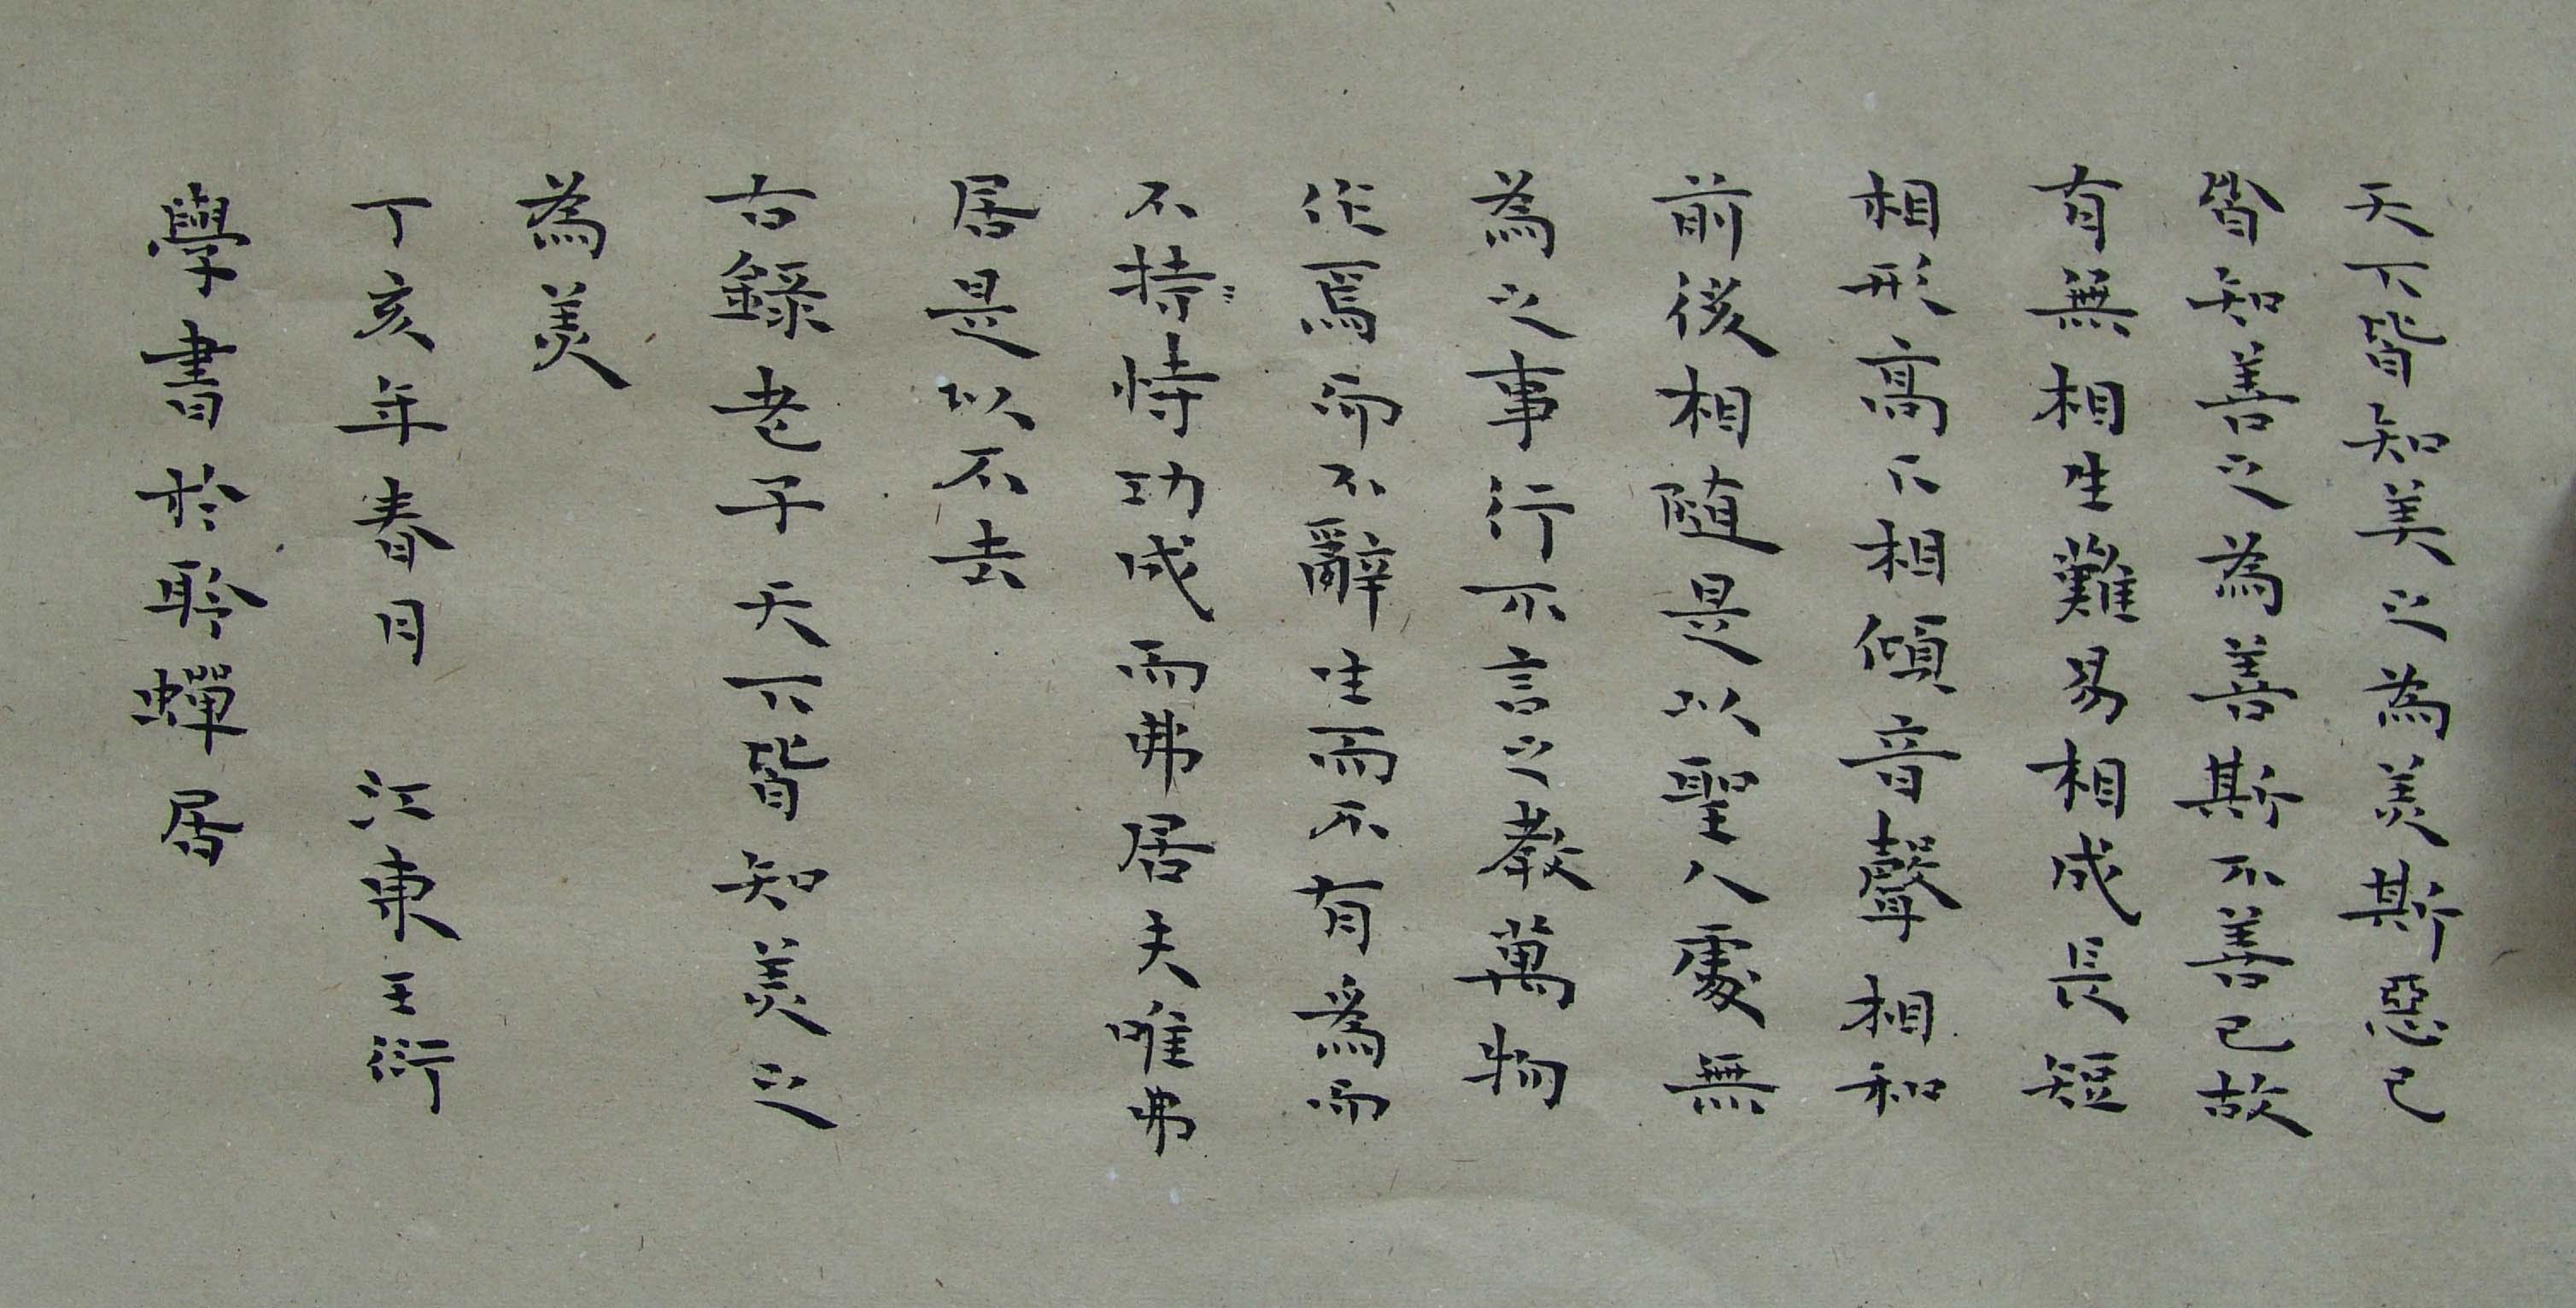 天下皆知美之為美斯惡已
皆知善之為善斯不善已故
有無相生難易相成長短
相形高下相傾音聲相和
前後相随是以聖人處無
為之事行不言之教萬物
作焉而不辭生而不有為而
不持恃功成而弗居夫唯弗
居是以不去
右錄老子天下皆知美之
為美
丁亥年春月 江東王衍
學書於聆蟬居